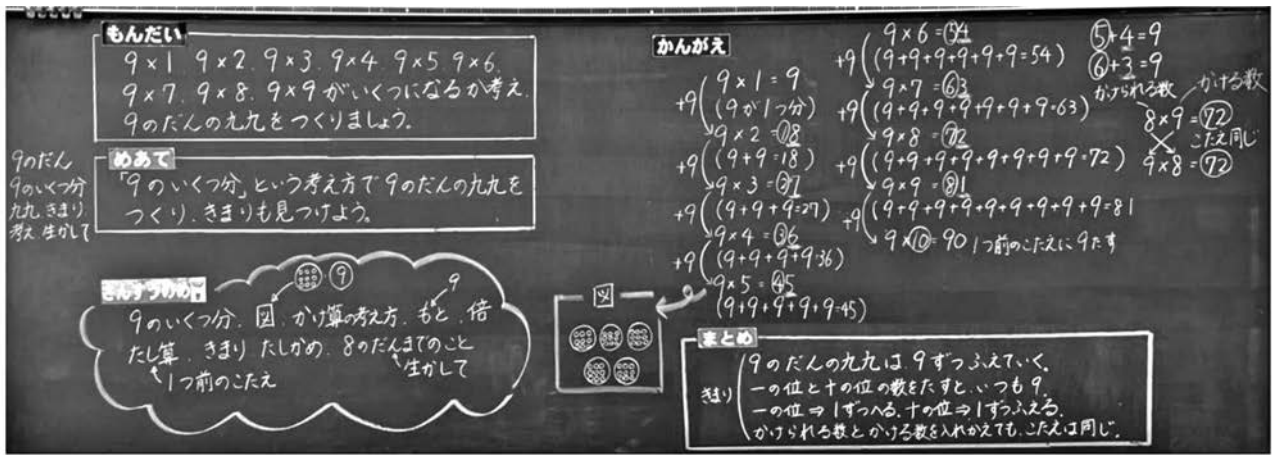 もんだい
9×1. 9×2. 9×3. 9×4. 9×5. 9×6.
9×7. 9×8. 9×9がいくつになるか考え.
9のだんの九九をつくりましょう。
9のだん
9のいくつ分
九九.きまり
考え.生かして
めあて
「9のいくつ分」という考え方で9のだんの九九を
つくり.きまりも見つけよう。
さんすうのめ
9
9
9のいくつ分. 図. かけ算の考え方. もと. 倍
たし算. きまり. たしかめ. 8のだんまでのこと
1つ前のこたえ
生かして
図
かんがえ
9×1=9
+9
(9が1つ分)
9×2=18
+9
(9+9=18)
9×3=27
+9
(9+9+9=27)
9×4=36
+9
(9+9+9+9=36)
9×5=45
(9+9+9+9+9=45)
9×6=54
+9
(9+9+9+9+9+9=54)
9×7=63
+9
(9+9+9+9+9+9+9=63)
9×8=72
+9
(9+9+9+9+9+9+9+9=72)
9×9=81
+9
(9+9+9+9+9+9+9+9+9=81
9×10=90 1つ前のこたえに9たす
5+4=9
6+3=9
かけられる数
かける数
8×9=72
こたえ同じ
9×8=72
まとめ
きまり
9のだんの九九は9ずつふえていく.
一の位と十の位の数をたすと.いつも9.
一の位⇒1ずつへる.十の位⇒1ずつふえる.
かけられる数とかける数を入れかえても.こたえは同じ.